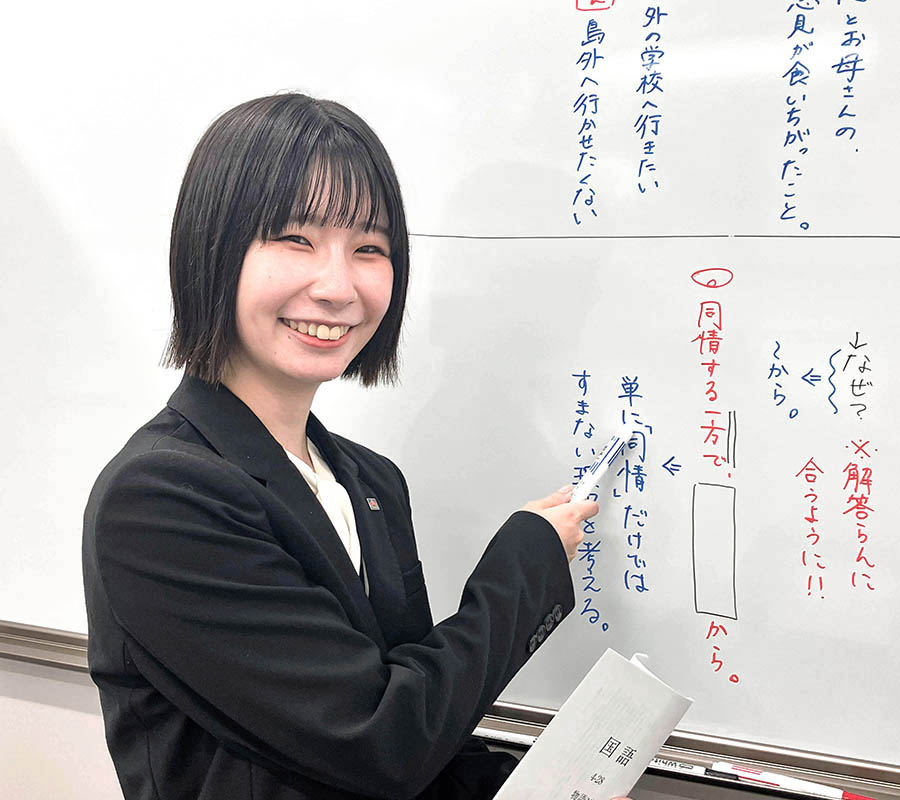 とお母さんの、
意見が食いちがったこと。
外の学校へ行きたい
島外へ行かせたくない
↓なぜ?
⇐
~から。
※解答らんに
合うように!!
同情する一方で、
から。
⇐
単に「同情」だけでは
すまない を考える。
国語